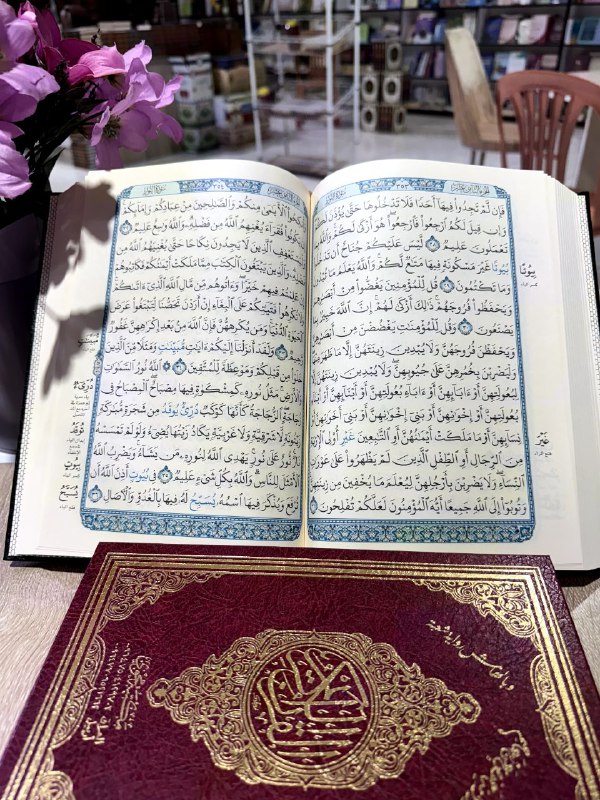 ٣٥٣
الجزء الثامن عشر
سورة النور
فَإِن لَّمْ تَجِدُوا فِيهَا أَحَدًا فَلَا تَدْخُلُوهَا حَتَّىٰ يُؤْذَنَ
وَإِن قِيلَ لَكُمُ ارْجِعُوا فَارْجِعُوا هُوَ أَزْكَىٰ لَكُمْ وَاللَّهُ
تَعْمَلُونَ عَلِيمٌ ٢٨ لَّيْسَ عَلَيْكُمْ جُنَاحٌ أَن
بِيُوتًا غَيْرَ مَسْكُونَةٍ فِيهَا مَتَاعٌ لَّكُمْ وَاللَّهُ يَعْلَمُ مَا
وَمَا تَكْتُمُونَ ٢٩ قُل لِّلْمُؤْمِنِينَ يَغُضُّوا مِنْ أَبْصَارِهِمْ
وَيَحْفَظُوا فُرُوجَهُمْ ذَٰلِكَ أَزْكَىٰ لَهُمْ إِنَّ اللَّهَ خَبِيرٌ
يَصْنَعُونَ ٣٠ وَقُل لِّلْمُؤْمِنَاتِ يَغْضُضْنَ مِنْ أَبْصَارِهِنَّ
وَيَحْفَظْنَ فُرُوجَهُنَّ وَلَا يُبْدِينَ زِينَتَهُنَّ إِلَّا مَا ظَهَرَ
وَلْيَضْرِبْنَ بِخُمُرِهِنَّ عَلَىٰ جُيُوبِهِنَّ وَلَا يُبْدِينَ زِينَتَهُنَّ
لِبُعُولَتِهِنَّ أَوْ ءَابَائِهِنَّ أَوْ ءَابَاءِ بُعُولَتِهِنَّ أَوْ أَبْنَائِهِنَّ أَوْ
بُعُولَتِهِنَّ أَوْ إِخْوَانِهِنَّ أَوْ بَنِي إِخْوَانِهِنَّ أَوْ بَنِي أَخَوَاتِهِنَّ
نِسَائِهِنَّ أَوْ مَا مَلَكَتْ أَيْمَانُهُنَّ أَوِ التَّابِعِينَ غَيْرَ أُولِي الْإِرْبَةِ
مِنَ الرِّجَالِ أَوِ الطِّفْلِ الَّذِينَ لَمْ يَظْهَرُوا عَلَىٰ عَوْرَاتِ
النِّسَاءِ وَلَا يَضْرِبْنَ بِأَرْجُلِهِنَّ لِيُعْلَمَ مَا يُخْفِينَ مِن زِينَتِهِنَّ
وَتُوبُوا إِلَى اللَّهِ جَمِيعًا أَيُّهَ الْمُؤْمِنُونَ لَعَلَّكُمْ تُفْلِحُونَ
بِيُوتًا
غَيْرَ
٣٥٤
الجزء الثامن عشر
سورة النور
وَأَنكِحُوا الْأَيَامَىٰ مِنكُمْ وَالصَّالِحِينَ مِنْ عِبَادِكُمْ وَإِمَائِكُمْ
يَكُونُوا فُقَرَاءَ يُغْنِهِمُ اللَّهُ مِن فَضْلِهِ وَاللَّهُ وَاسِعٌ عَلِيمٌ ٣٢
وَلْيَسْتَعْفِفِ الَّذِينَ لَا يَجِدُونَ نِكَاحًا حَتَّىٰ يُغْنِيَهُمُ اللَّهُ مِن
وَالَّذِينَ يَبْتَغُونَ الْكِتَابَ مِمَّا مَلَكَتْ أَيْمَانُكُمْ فَكَاتِبُوهُمْ
عَلِمْتُمْ فِيهِمْ خَيْرًا وَءَاتُوهُم مِّن مَّالِ اللَّهِ الَّذِي ءَاتَاكُمْ
تُكْرِهُوا فَتَيَاتِكُمْ عَلَى الْبِغَاءِ إِنْ أَرَدْنَ تَحَصُّنًا لِّتَبْتَغُوا عَرَضَ
الدُّنْيَا وَمَن يُكْرِههُّنَّ فَإِنَّ اللَّهَ مِن بَعْدِ إِكْرَاهِهِنَّ غَفُورٌ
وَلَقَدْ أَنزَلْنَا إِلَيْكُمْ ءَايَاتٍ مُّبَيَّنَاتٍ وَمَثَلًا مِّنَ الَّذِينَ
مِن قَبْلِكُمْ وَمَوْعِظَةً لِّلْمُتَّقِينَ ٣٤ اللَّهُ نُورُ السَّمَاوَاتِ
مَثَلُ نُورِهِ كَمِشْكَاةٍ فِيهَا مِصْبَاحٌ الْمِصْبَاحُ فِي
الزُّجَاجَةُ كَأَنَّهَا كَوْكَبٌ دُرِّيءٌ تُوقَدُ مِن شَجَرَةٍ مُّبَارَكَةٍ
لَّا شَرْقِيَّةٍ وَلَا غَرْبِيَّةٍ يَكَادُ زَيْتُهَا يُضِيءُ وَلَوْ لَمْ تَمْسَسْهُ
نُّورٌ عَلَىٰ نُورٍ يَهْدِي اللَّهُ لِنُورِهِ مَن يَشَاءُ وَيَضْرِبُ اللَّهُ
الْأَمْثَالَ لِلنَّاسِ وَاللَّهُ بِكُلِّ شَيْءٍ عَلِيمٌ ٣٥ فِي بِيُوتٍ أَذِنَ اللَّهُ أَن
تُرْفَعَ وَيُذْكَرَ فِيهَا اسْمُهُ يُسَبَّحُ لَهُ فِيهَا بِالْغُدُوِّ وَالْآصَالِ ٣٦
دُرِّيءٌ
تُوقَدُ
بِيُوتٍ
يُسَبَّحُ
القرآن الكريم
وبالهامش رواية شعبة